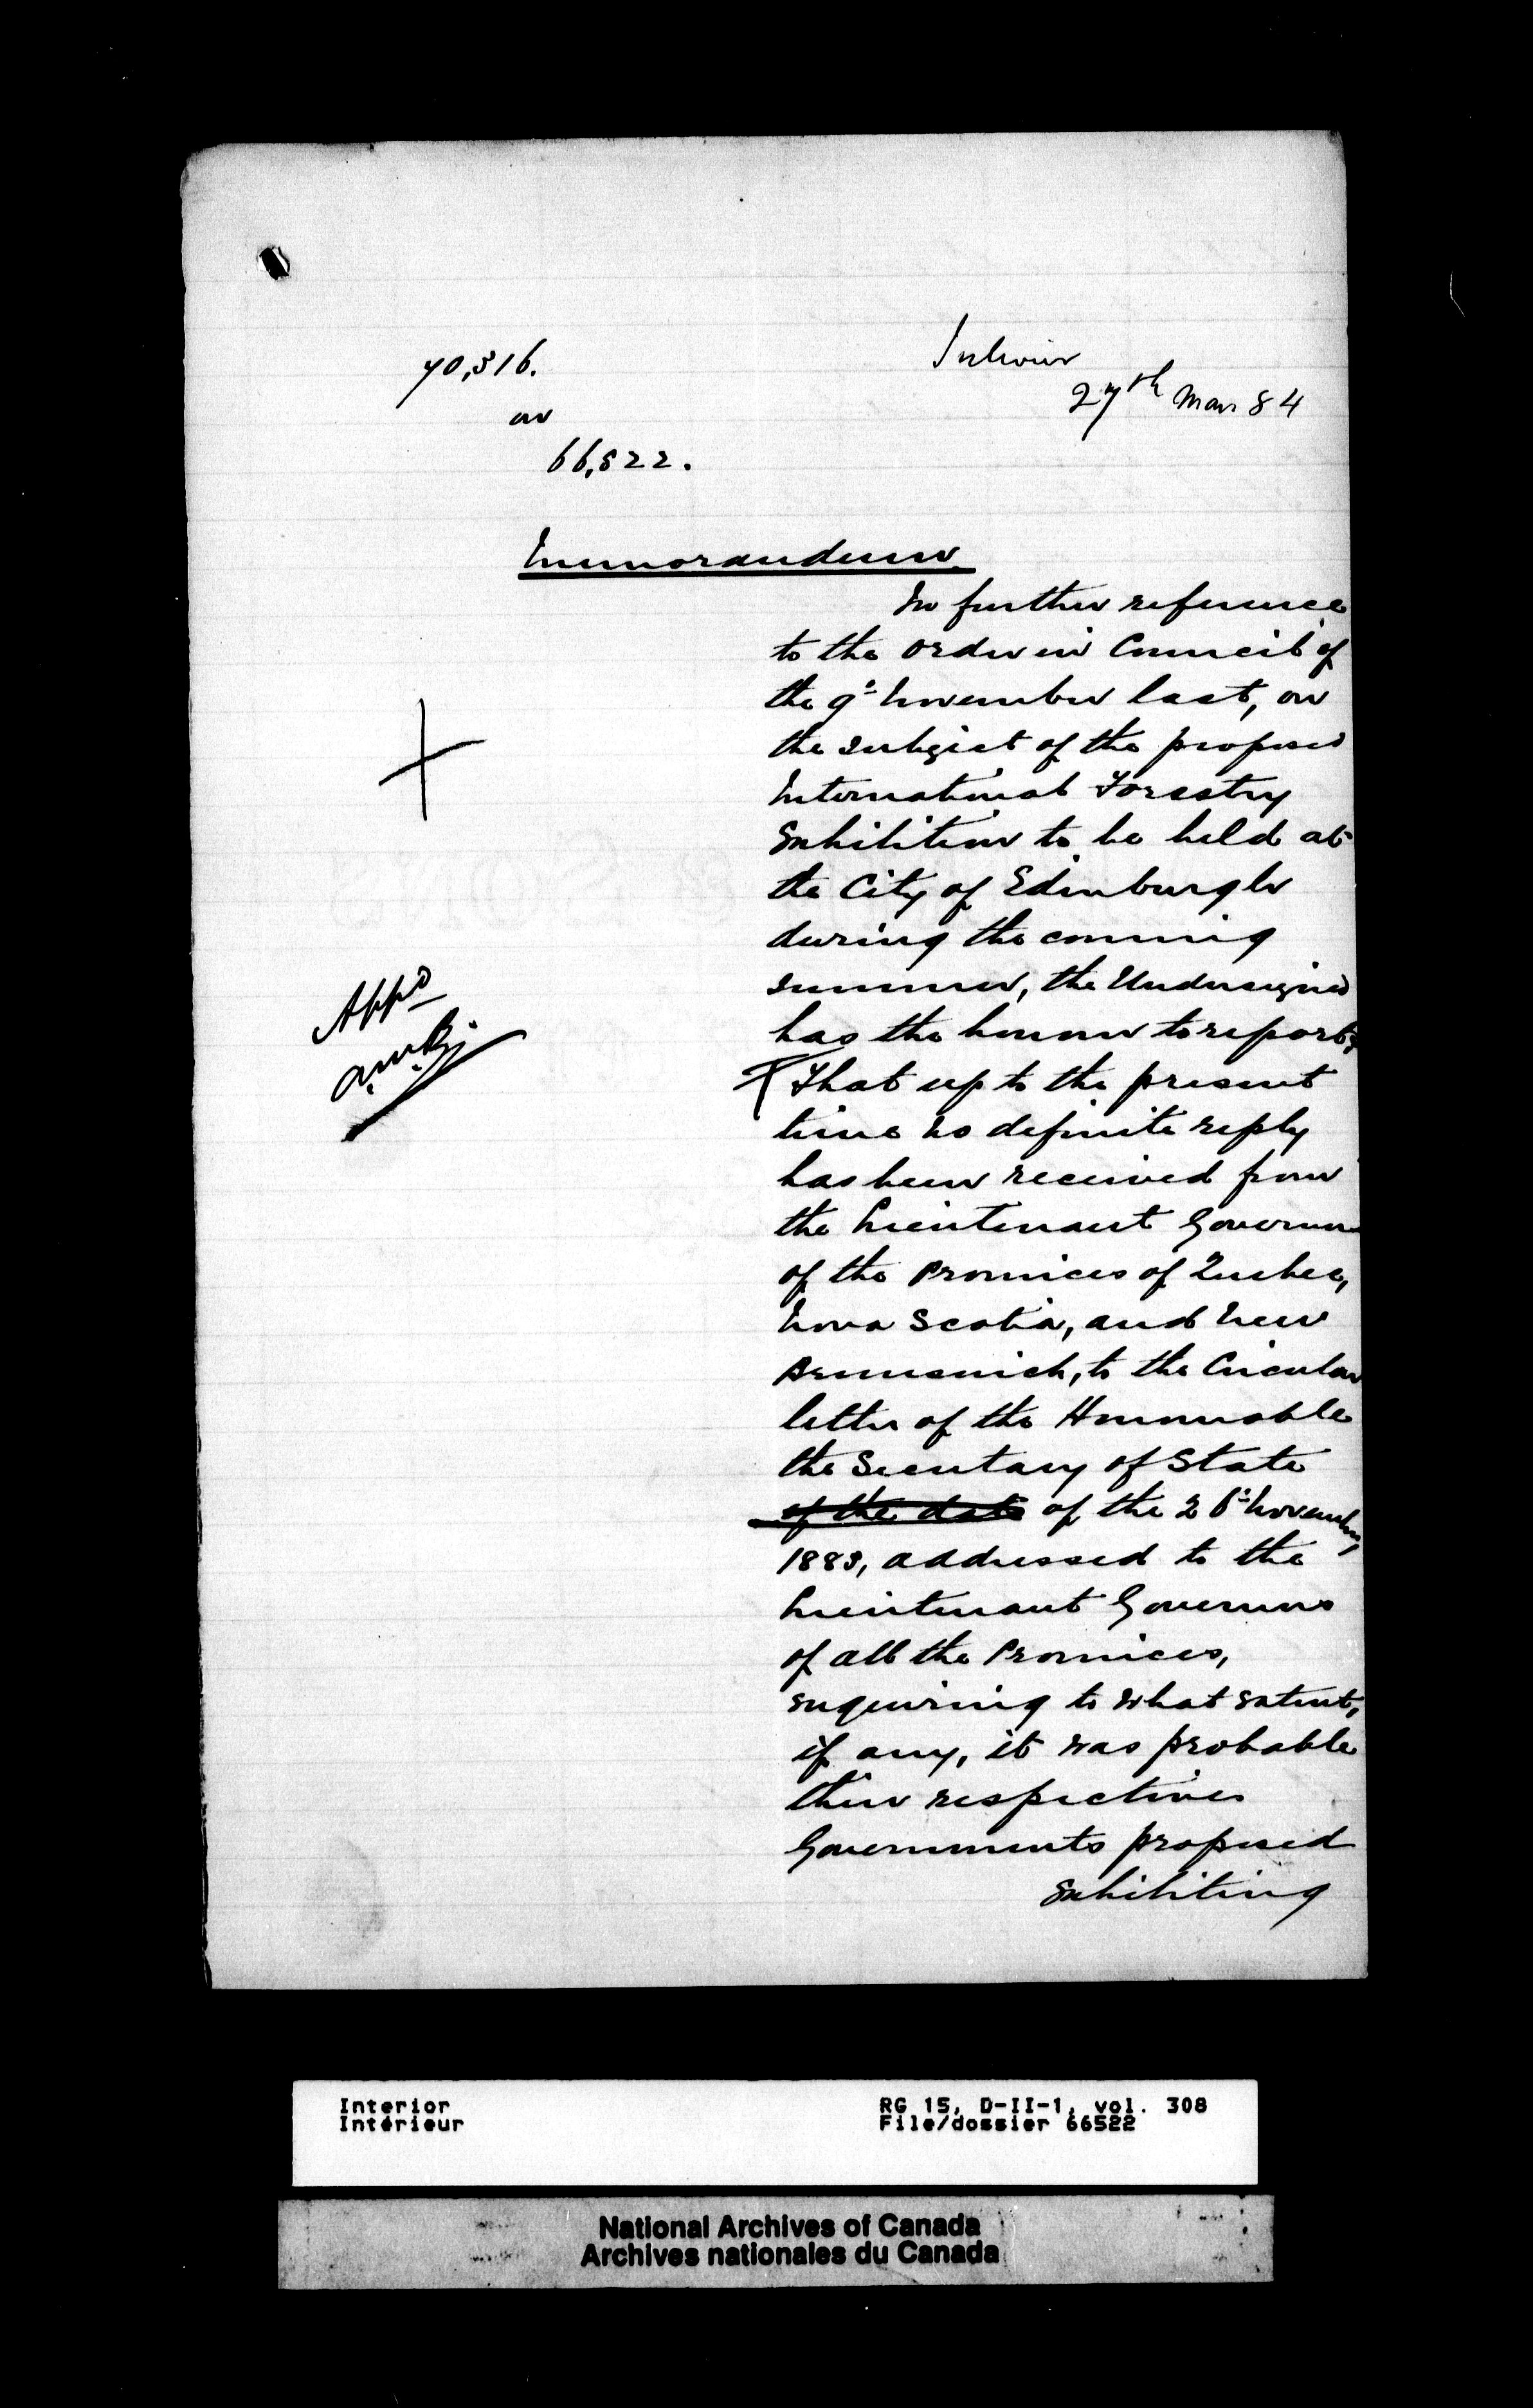 70,316.
on
66,522.
Interior
27th Mar 84
Memorandum
In further reference
to the Order in Council of
the 9th November last, on
the subject of the proposed
International Forestry
Exhibition to be held at
the City of Edinburgh
during the coming
summer, the Undersigned
has the honour to report,
That up to the present
time no definite reply
has been received from
the Lieutenant Governor
of the Provinces of Quebec,
Nova Scotia, and New
Brunswick, to the Circular
letter of the Honourable
the Secretary of State
of the date of the 26th November,
1883, addressed to the
Lieutenant Governors
of all the Provinces,
enquiring to what extent,
if any, it was probable
their respective
Governments proposed
exhibiting
Appd
Interior
Intérieur
RG 15, D-II-1, vol. 308
File/dossier 66522
National Archives of Canada
Archives nationales du Canada